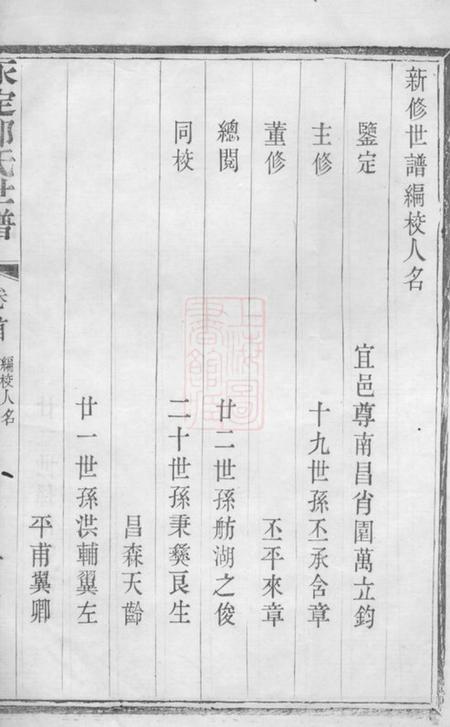 新修世譜編校人名
鑒定 宜邑尊南昌肖園萬立鈞
主修 十九世孫丕承含章
董修 丕平來章
總閱 廿二世孫舫湖之俊
同校 二十世孫秉彝良生
昌森天齡
廿一世孫洪輔翼左
平甫翼卿
氏世譜 卷首 編校人名
上海圖書館藏